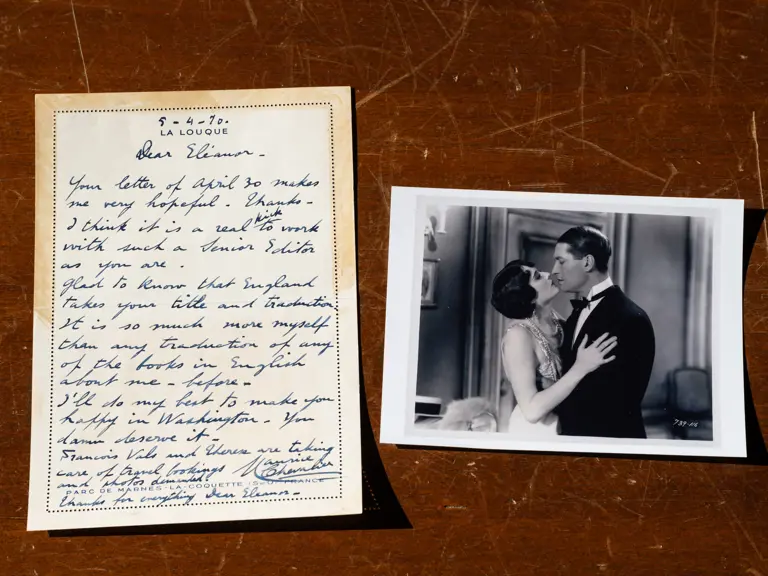 5-4-70.
LA LOUQUE
Dear Eléanor -
Your letter of April 30 makes
me very hopeful - Thanks -
I think it is a real kick to work
with such a Senior Editor
as you are.
Glad to know that England
takes your title and traduction.
It is so much more myself
than any traduction of any
of the books in English
about me - before -
I'll do my best to make you
happy in Washington - You
damn deserve it -
Francois Vals and Therese are taking
care of travel bookings Maurice
and photos demanded. Chevalier
PARC DE MARNES-LA-COQUETTE (S.-&-O.) FRANCE
Thanks for everything Dear Eleanor -
739-116